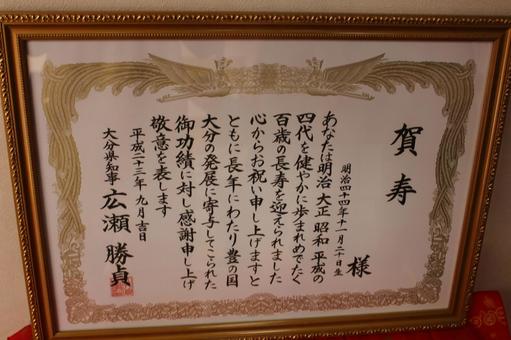 賀寿
様
明治四十四年十一月二十日生
あなたは明治 大正 昭和 平成の
四代を健やかに歩まれめでたく
百歳の長寿を迎えられました
心からお祝い申し上げますと
ともに長年にわたり豊の国
大分の発展に寄与してこられた
御功績に対し感謝申し上げ
敬意を表します
平成二十三年 九月吉日
大分県知事 広瀬 勝貞